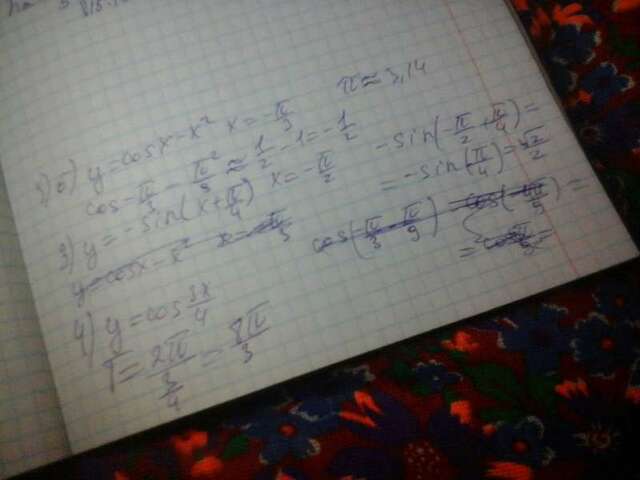 π ≈ 3,14
б) y = cos x - x² x = -π/3
cos -π/3 - π²/9 ≈ 1/2 - 1 = -1/2
3) y = -sin(x + π/4) x = -π/2
-sin(-π/2 + π/4) =
= -sin(π/4) = √2/2
y = cos x - x² x = -π/3
4) y = cos 3x/4
T = 2π/(3/4) = 8π/3